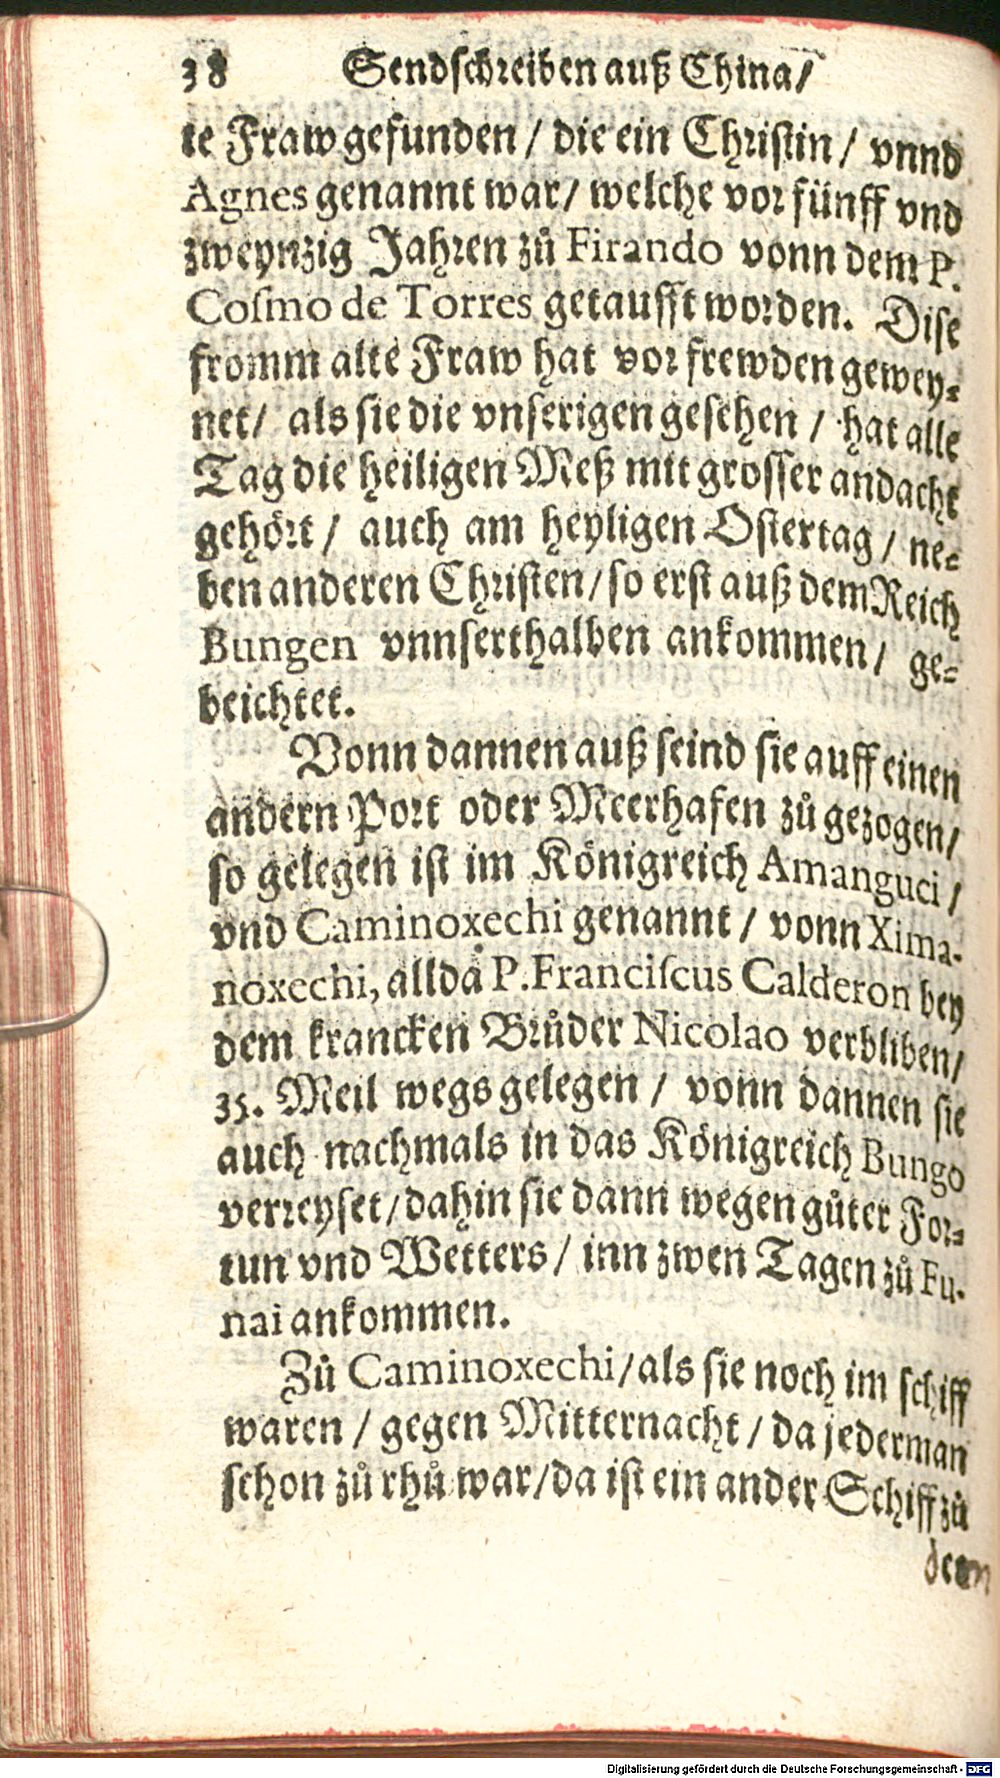 38 Sendschreiben auß China/
te Fraw gefunden / die ein Christin / vnnd
Agnes genannt war/ welche vor fünff vnd
zweynzig Jahren zů Firando vonn dem P.
Cosmo de Torres getaufft worden. Dise
fromm alte Fraw hat vor frewden gewey-
net/ als sie die vnserigen gesehen / hat alle
Tag die heiligen Meß mit grosser andacht
gehört / auch am heyligen Ostertag / ne-
ben anderen Christen/ so erst auß dem Reich
Bungen vnnserthalben ankommen/ ge-
beichtet.
Vonn dannen auß seind sie auff einen
andern Port oder Meerhafen zů gezogen/
so gelegen ist im Königreich Amanguci /
vnd Caminoxechi genannt / vonn Xima-
noxechi, allda P. Franciscus Calderon bey
dem krancken Brůder Nicolao verbliben/
35. Meil wegs gelegen / vonn dannen sie
auch nachmals in das Königreich Bungo
verreyset/ dahin sie dann wegen gůter For-
tun vnd Wetters / inn zwen Tagen zů Fu-
nai ankommen.
Zů Caminoxechi/ als sie noch im schiff
waren / gegen Mitternacht / da jederman
schon zů rhů war/ da ist ein ander Schiff zů
dem
Digitalisierung gefördert durch die Deutsche Forschungsgemeinschaft - DFG